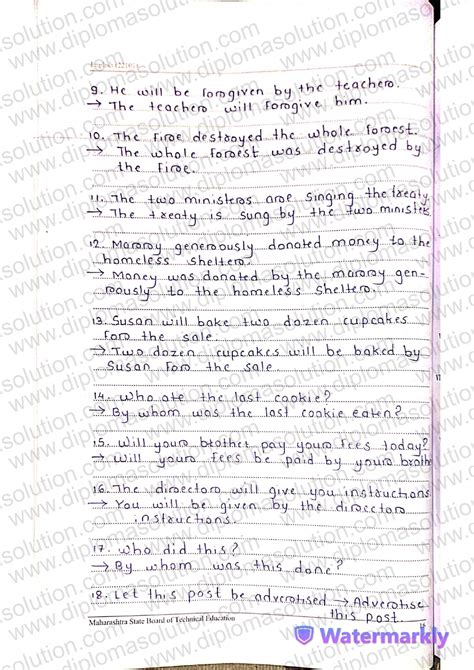 www.diplomasolution.com
9. He will be forgiven by the teacher.
→ The teacher will forgive him.
10. The fire destroyed the whole forest.
→ The whole forest was destroyed by
the fire.
11. The two ministers are singing the treaty
→ The treaty is sung by the two ministers
12. Marry generously donated money to the
homeless shelter.
→ Money was donated by the marry gen-
rously to the homeless shelter.
13. Susan will bake two dozen cupcakes
for the sale.
→ Two dozen cupcakes will be baked by
Susan for the sale.
14. Who ate the last cookie?
→ By whom was the last cookie eaten?
15. Will your brother pay your fees today?
→ Will your fees be paid by your broth
16. The director will give you instructions
→ You will be given by the director
instructions.
17. Who did this?
→ By whom was this done?
18. Let this post be advertised → Advertise
this post.
Maharashtra State Board of Technical Education
Watermarkly